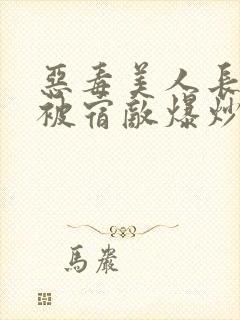 惡毒美人長
被宿敵爆炒
馬嚴